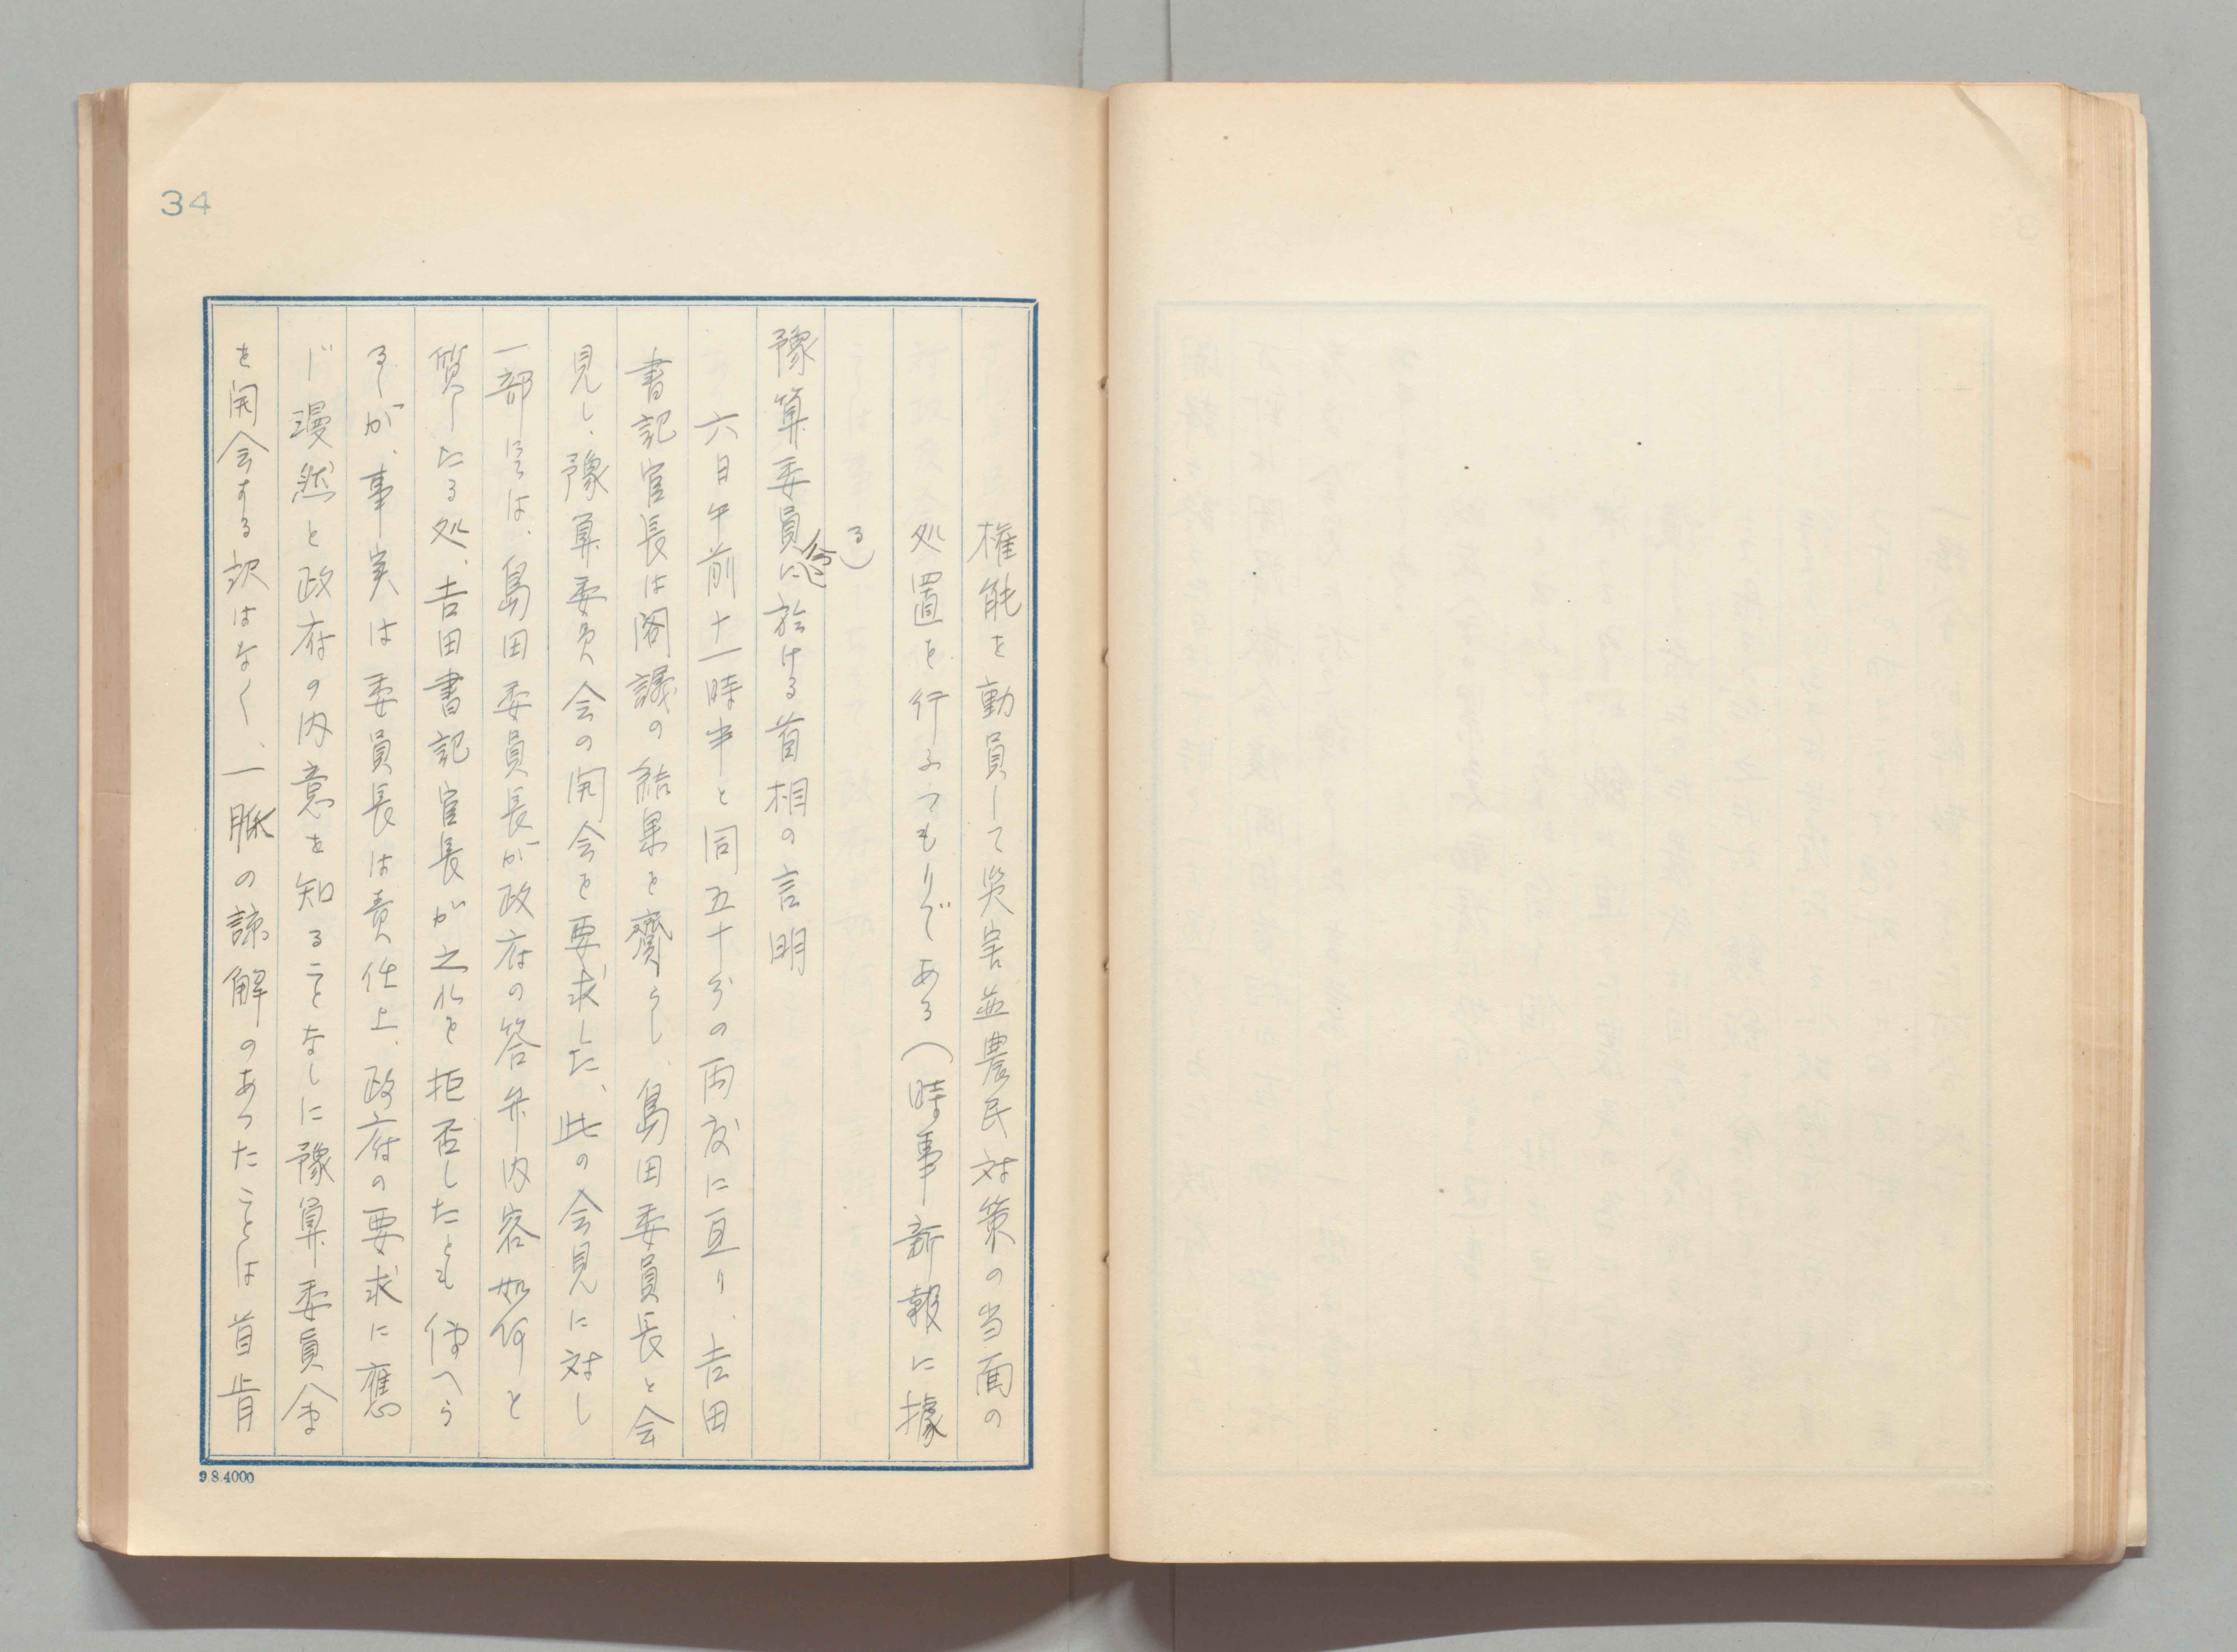 34
権能を動員して災害並農民対策の当面の
処置を行ふつもりである(時事新報に據
る)
豫算委員会に於ける首相の言明
六日午前十一時半と同五十分の両度に亘り、吉田
書記官長は閣議の結果を齎らし、島田委員長と会
見し、豫算委員会の開会を要求した、此の会見に対し
一部にては、島田委員長が政府の答弁内容如何と
質したる処、吉田書記官長が之れを拒否したとも傳へら
るゝが、事実は委員長は責任上、政府の要求に應
じ漫然と政府の内意を知ることなしに豫算委員会
を開会する訳はなく、一脈の諒解のあつたことは首肯
9.8.4000